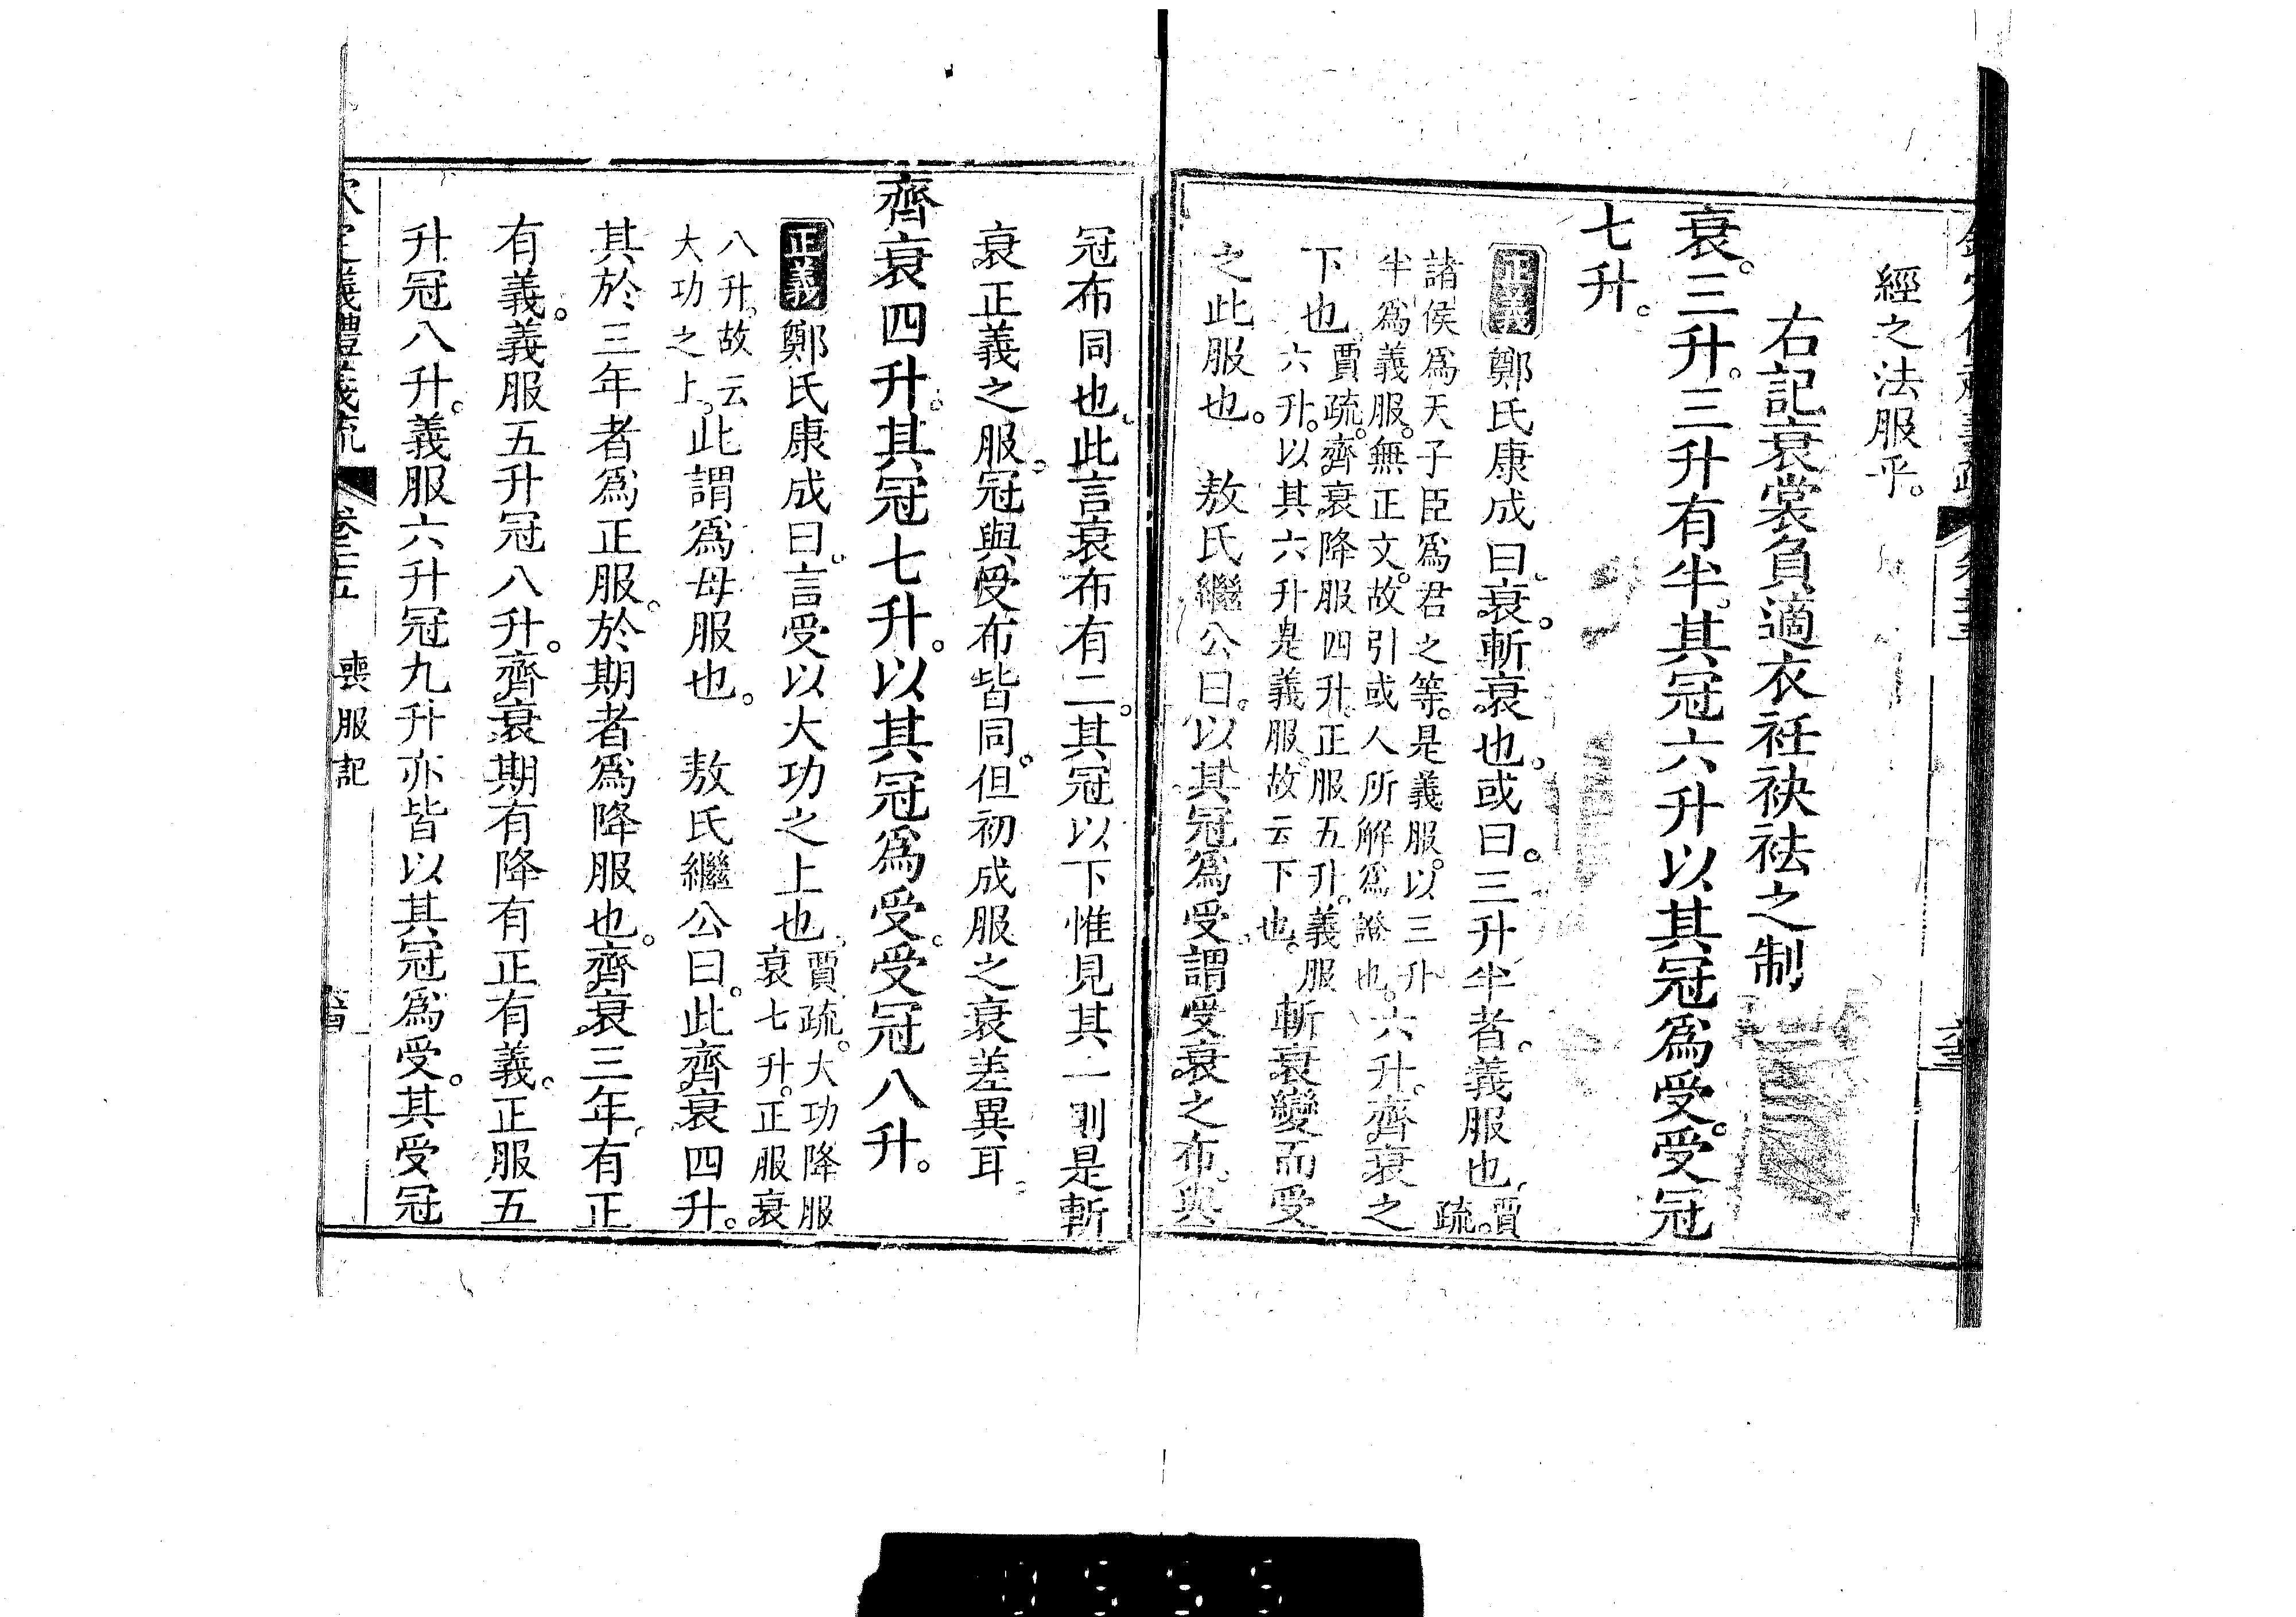 經之法服乎。
右記衰裳負適衣衽袂袪之制
衰。三升。三升有半。其冠六升以其冠爲受。受冠
七升。
正義鄭氏康成曰。衰。斬衰也。或曰。三升半者。義服也。賈
疏。
諸侯爲天子臣爲君之等。是義服。以三升
半爲義服。無正文。故引或人所解爲證也。六升。齊衰之
下也。賈疏。齊衰降服四升。正服五升。義服
六升。以其六升是義服。故云下也。斬衰變而受
之此服也。 敖氏繼公曰。以其冠爲受。謂受衰之布。與
冠布同也。此言衰布有二。其冠以下惟見其一則是斬
衰正義之服。冠與受布皆同。但初成服之衰差異耳。
齊衰四升。其冠七升。以其冠爲受。受冠八升。
正義鄭氏康成曰。言受以大功之上也。賈疏。大功降服
衰七升。正服衰
八升。故云
大功之上。此謂爲母服也。 敖氏繼公曰。此齊衰四升。
其於三年者爲正服。於期者爲降服也。齊衰三年。有正
有義。義服五升冠八升。齊衰期有降有正有義。正服五
升冠八升。義服六升冠九升亦皆以其冠爲受。其受冠
喪服記